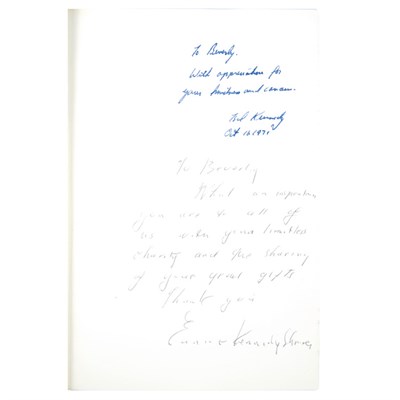 To Beverly.
With appreciation for
your kindness and concern.
Ted Kennedy
Oct 16 1971
To Beverly
What an inspiration
you are to all of
us with your limitless
charity and the sharing
of your great gifts
Thank you
Eunice Kennedy Shriver